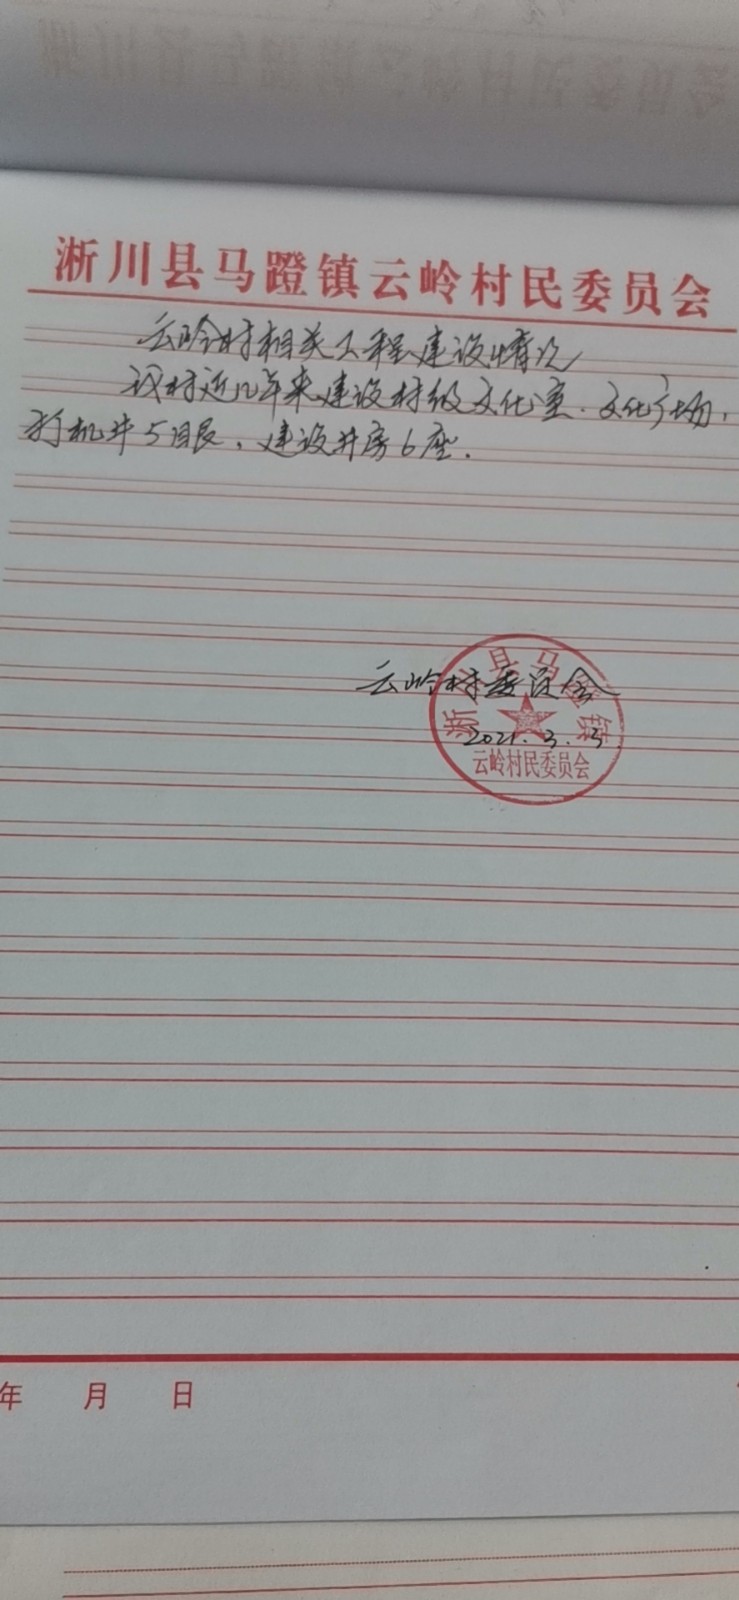 淅川县马蹬镇云岭村民委员会
云岭村相关工程建设情况
我村近几年来建设村级文化室、文化广场,
打机井5眼、建设井房6座.
云岭村委员会
2021.3.3.
淅川县马蹬镇
云岭村民委员会
年 月 日